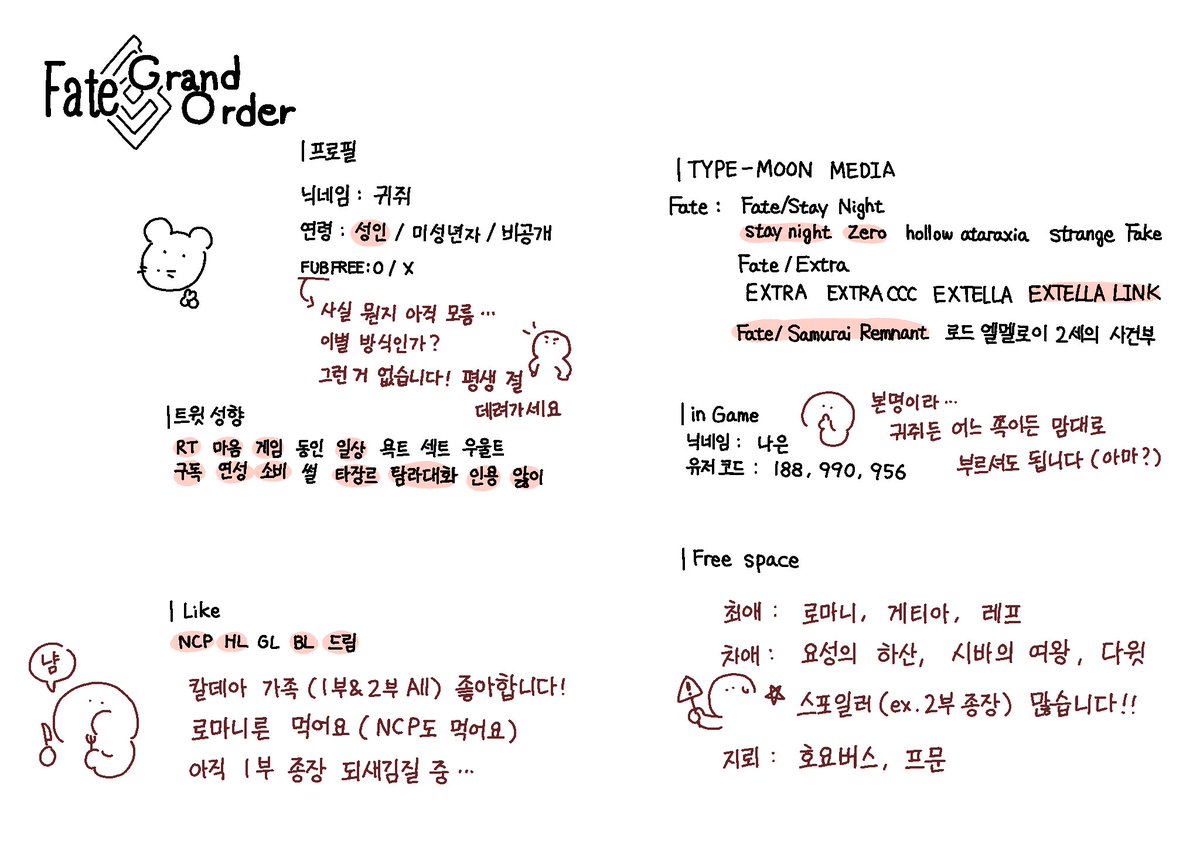 Fate Grand Order
|프로필
닉네임 : 귀쥐
연령 : 성인 / 미성년자 / 비공개
FUB FREE : O / X
사실 뭔지 아직 모름…
이별 방식인가?
그런 거 없습니다! 평생 절
데려가세요
|트윗 성향
RT 마음 게임 동인 일상 욕트 섹트 우울트
구독 연성 소비 썰 타장르 탐라대화 인용 앓이
|Like
NCP HL GL BL 드림
냠
칼데아 가족 (1부&2부 All) 좋아합니다!
로마니른 먹어요 (NCP도 먹어요)
아직 1부 종장 되새김질 중…
|TYPE-MOON MEDIA
Fate : Fate/Stay Night
stay night Zero hollow ataraxia strange Fake
Fate/Extra
EXTRA EXTRA CCC EXTELLA EXTELLA LINK
Fate/Samurai Remnant 로드 엘멜로이 2세의 사건부
|in Game
닉네임 : 나은
유저 코드 : 188,990,956
본명이라…
귀쥐든 어느 쪽이든 맘대로
부르셔도 됩니다 (아마?)
|Free space
최애 : 로마니, 게티아, 레프
차애 : 요성의 하산, 시바의 여왕, 다윗
! ☆ 스포일러 (ex. 2부 종장) 많습니다!!
지뢰 : 호요버스, 프문